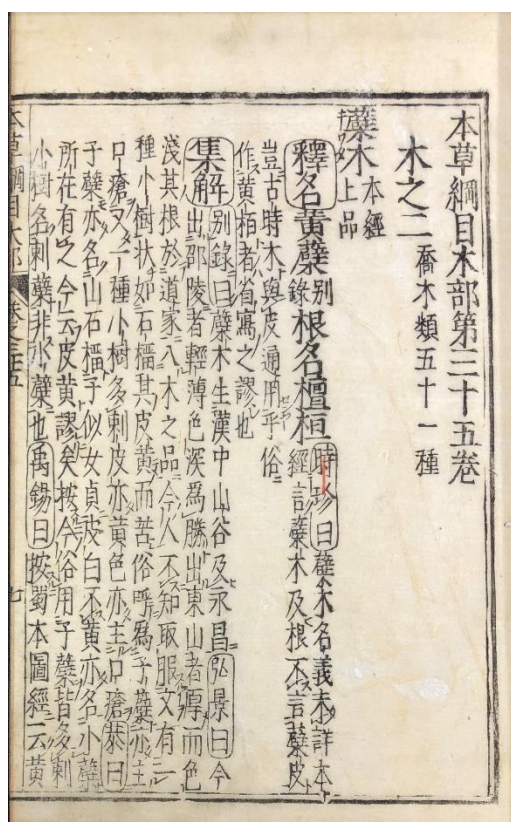 本草綱目木部第三十五卷
木之二 喬木類五十一種
蘗木 本經上品
釋名黃蘗別錄根名檀桓時珍曰蘗木名義未詳本
經言蘗木及根不言蘗皮
豈古時木與皮通用乎俗
作黃栢者省寫之謬也
集解別錄曰蘗木生漢中山谷及永昌弘景曰今
出邵陵者輕薄色深爲勝出東山者厚而色
淺其根於道家入木之品今人不知取服又有一
種小樹狀如石榴其皮黃而苦俗呼爲子蘗亦主
口瘡又一種小樹多刺皮亦黃色亦主口瘡恭曰
子蘗亦名山石榴子似女貞皮白不黃亦名小蘗
所在有之今云皮黃謬矣按今俗用子蘗皆多刺
小樹名刺蘗非小蘗也禹錫曰按蜀本圖經云黃
本草綱目木部
七